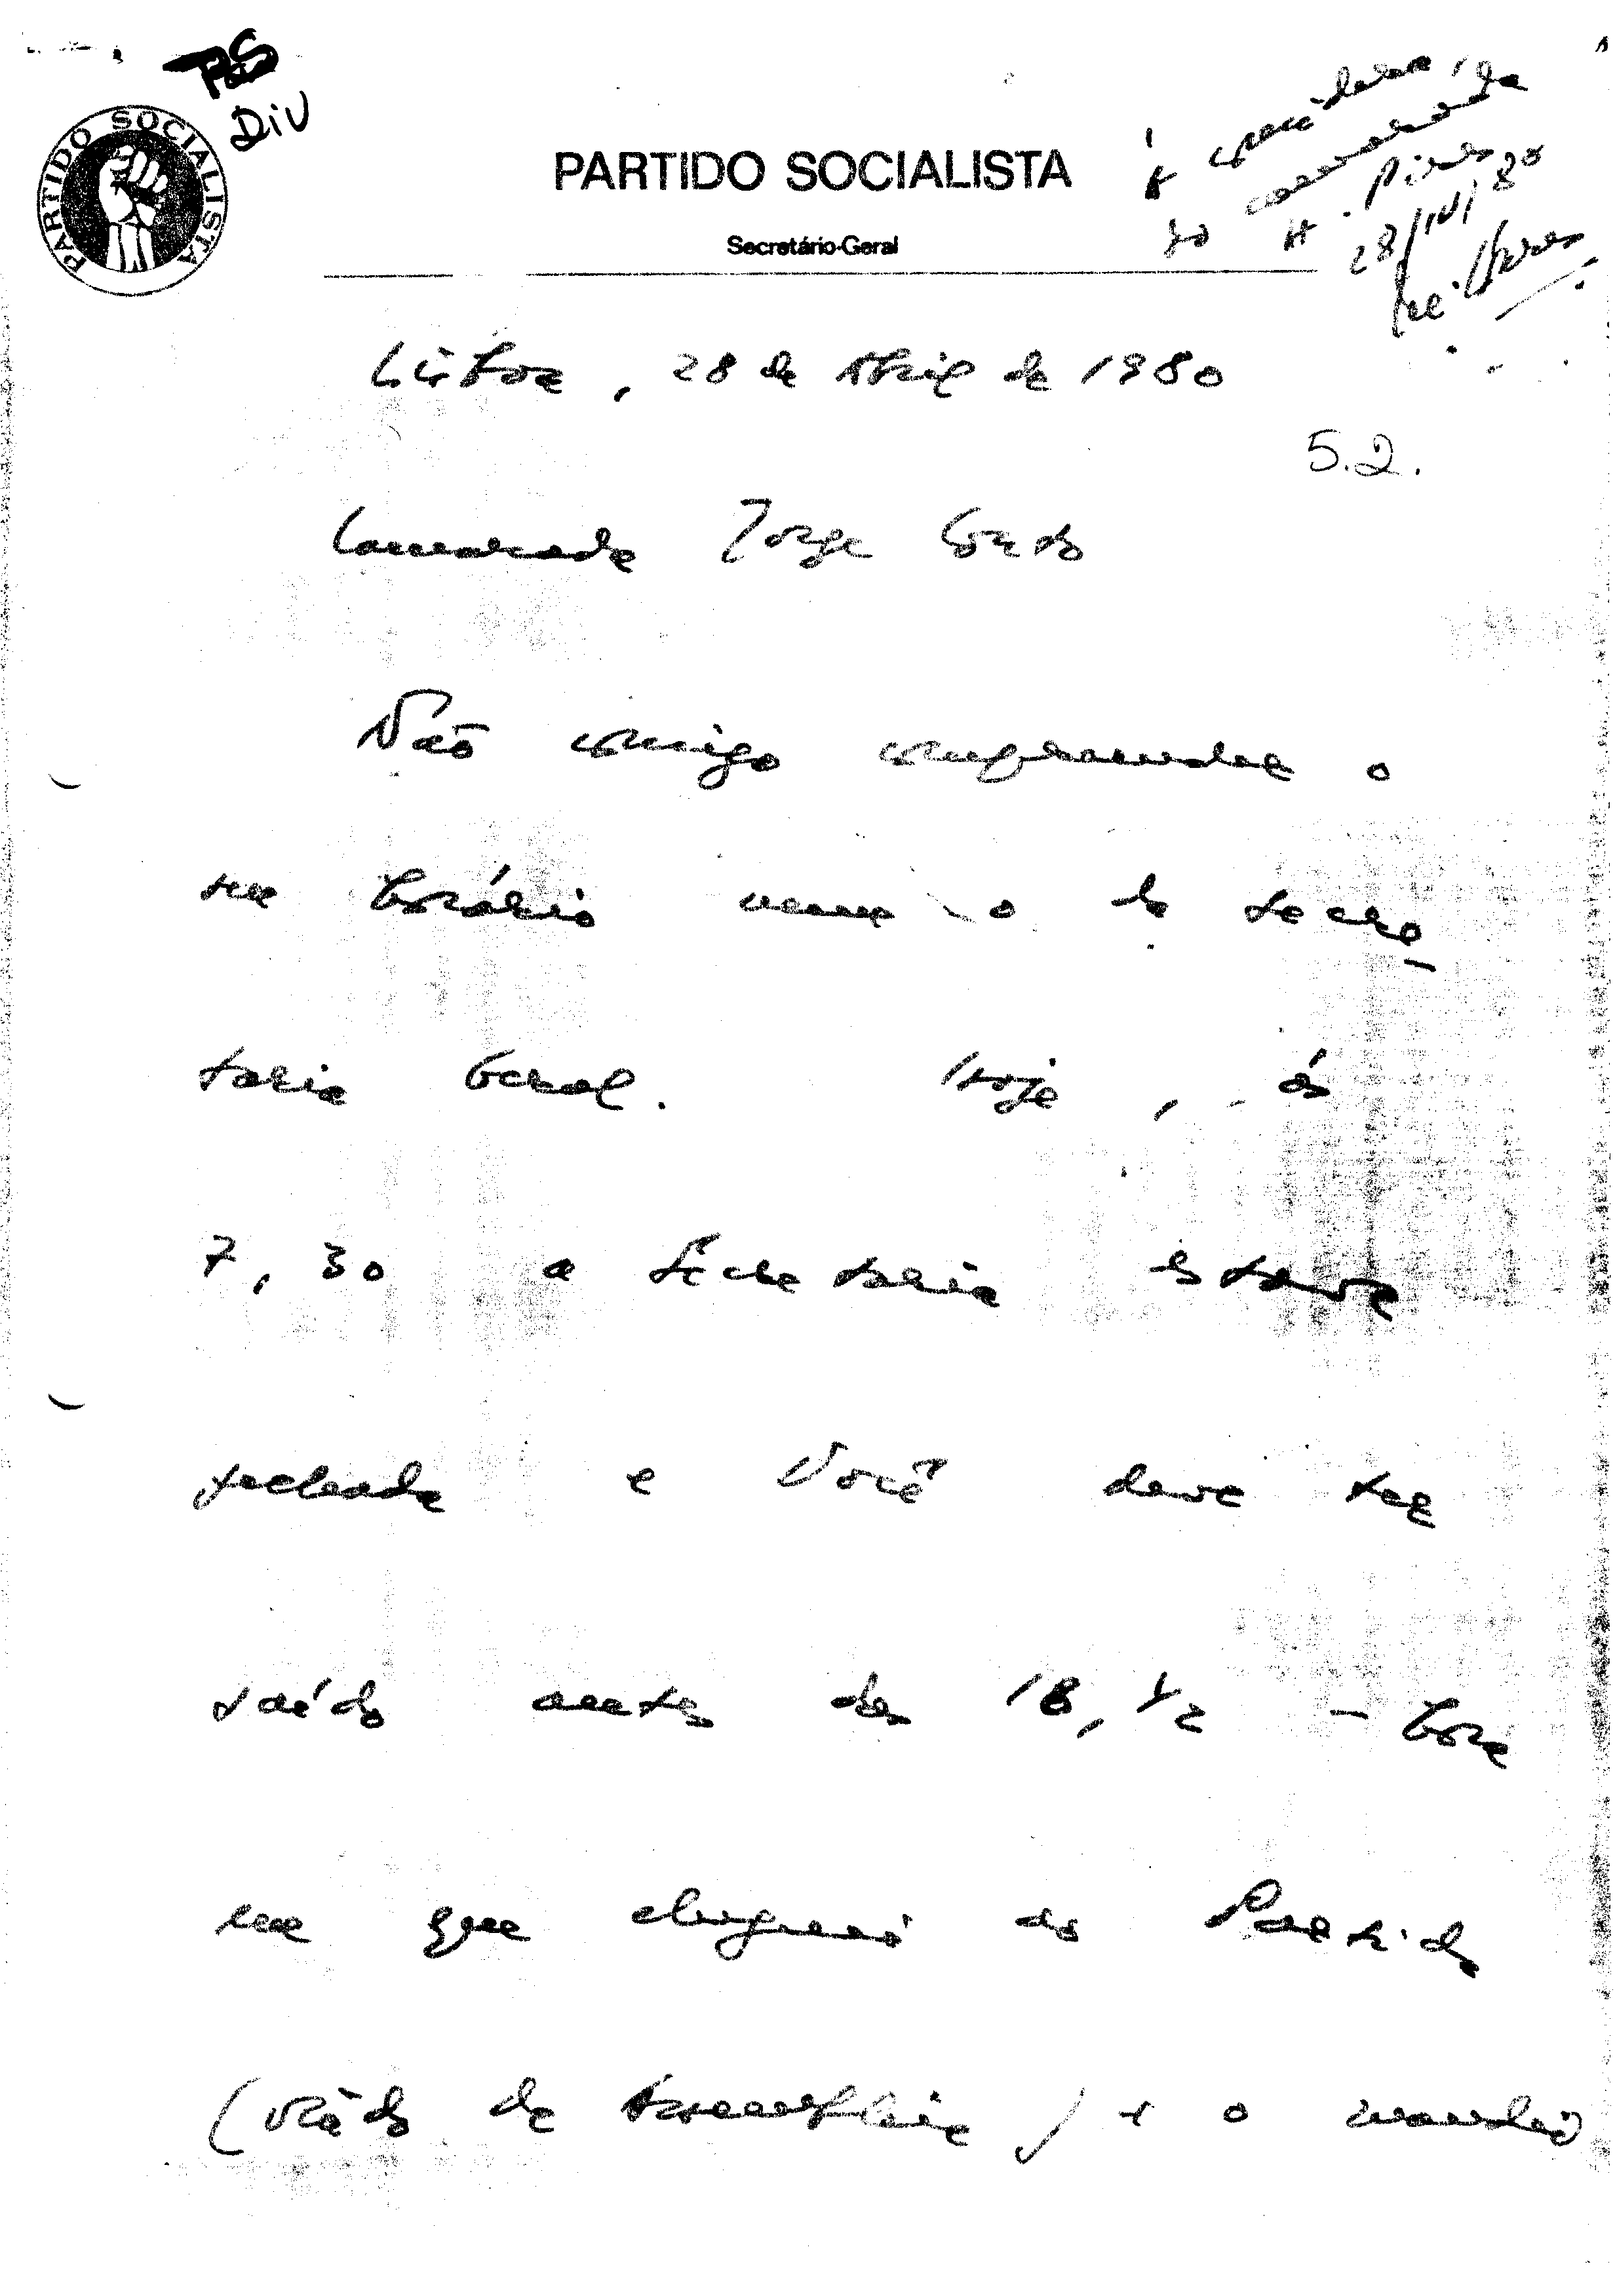 PS
DIV
PARTIDO SOCIALISTA
PARTIDO SOCIALISTA
Secretário-Geral
À consideração
do camarada
H. Pires
28/IV/80
Lisboa, 28 de Abril de 1980
5.2.
Camarada Jorge
Não consigo compreender o
seu horário nem o da Secre-
taria Geral. Hoje, às
7,30 a Secretaria estava
fechada e Você deve ter
saído antes das 18,1/2 - hora
em que cheguei ao Partido
(vindo da Assembleia) e o mandei